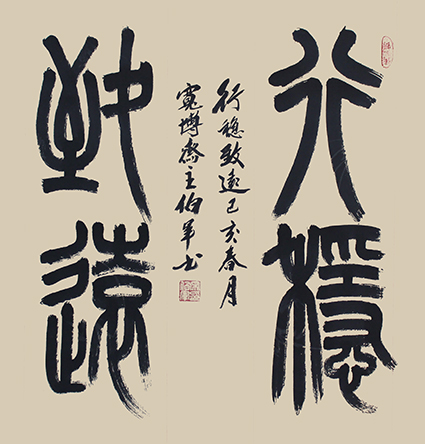 行穩
致遠
行穩致遠己亥春月
寬博齋主伯軍書